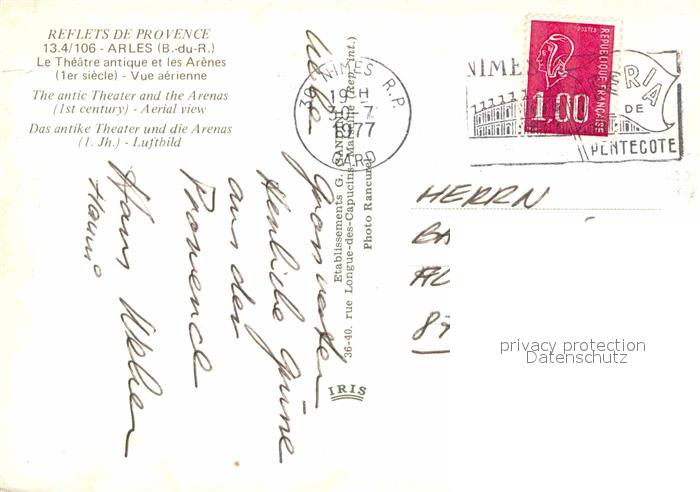 REFLETS DE PROVENCE
13.4/106 - ARLES (B.-du-R.)
Le Théâtre antique et les Arènes
(1er siècle) - Vue aérienne
The antic Theater and the Arenas
(1st century) - Aerial view
Das antike Theater und die Arenas
(1. Jh.) - Luftbild
Lieber
Grossvater
Herzliche Grüsse
aus der
Provence
Hans
Etablissements G.
36-40, rue Longue-des-Capucins, (Rep. int.)
Photo Rancurel
IRIS
30 NIMES R.P.
19 H
30 7
1977
GARD
NIMES
DE
PENTECOTE
POSTES
REPUBLIQUE FRANÇAISE
1,00
HERRN
privacy protection
Datenschutz